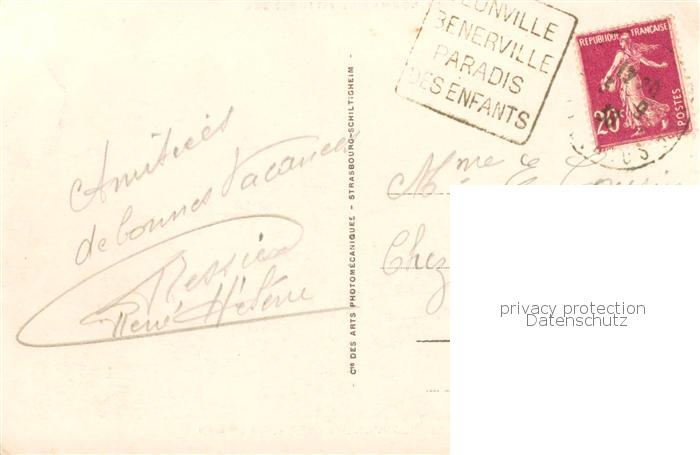 BENERVILLE
PARADIS
DES ENFANTS
REPUBLIQUE FRANÇAISE
20
POSTES
Amitiés
de bonnes Vacances
René Hélène
Cie DES ARTS PHOTOMÉCANIQUES - STRASBOURG-SCHILTIGHEIM
Mme
Chez
privacy protection
Datenschutz